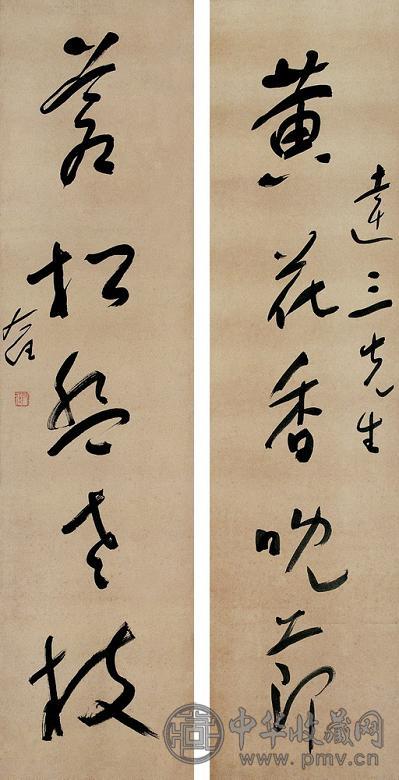 達三先生
黄花香晚節
蒼松盤老枝
右任
中华收藏网
www.pmv.cn